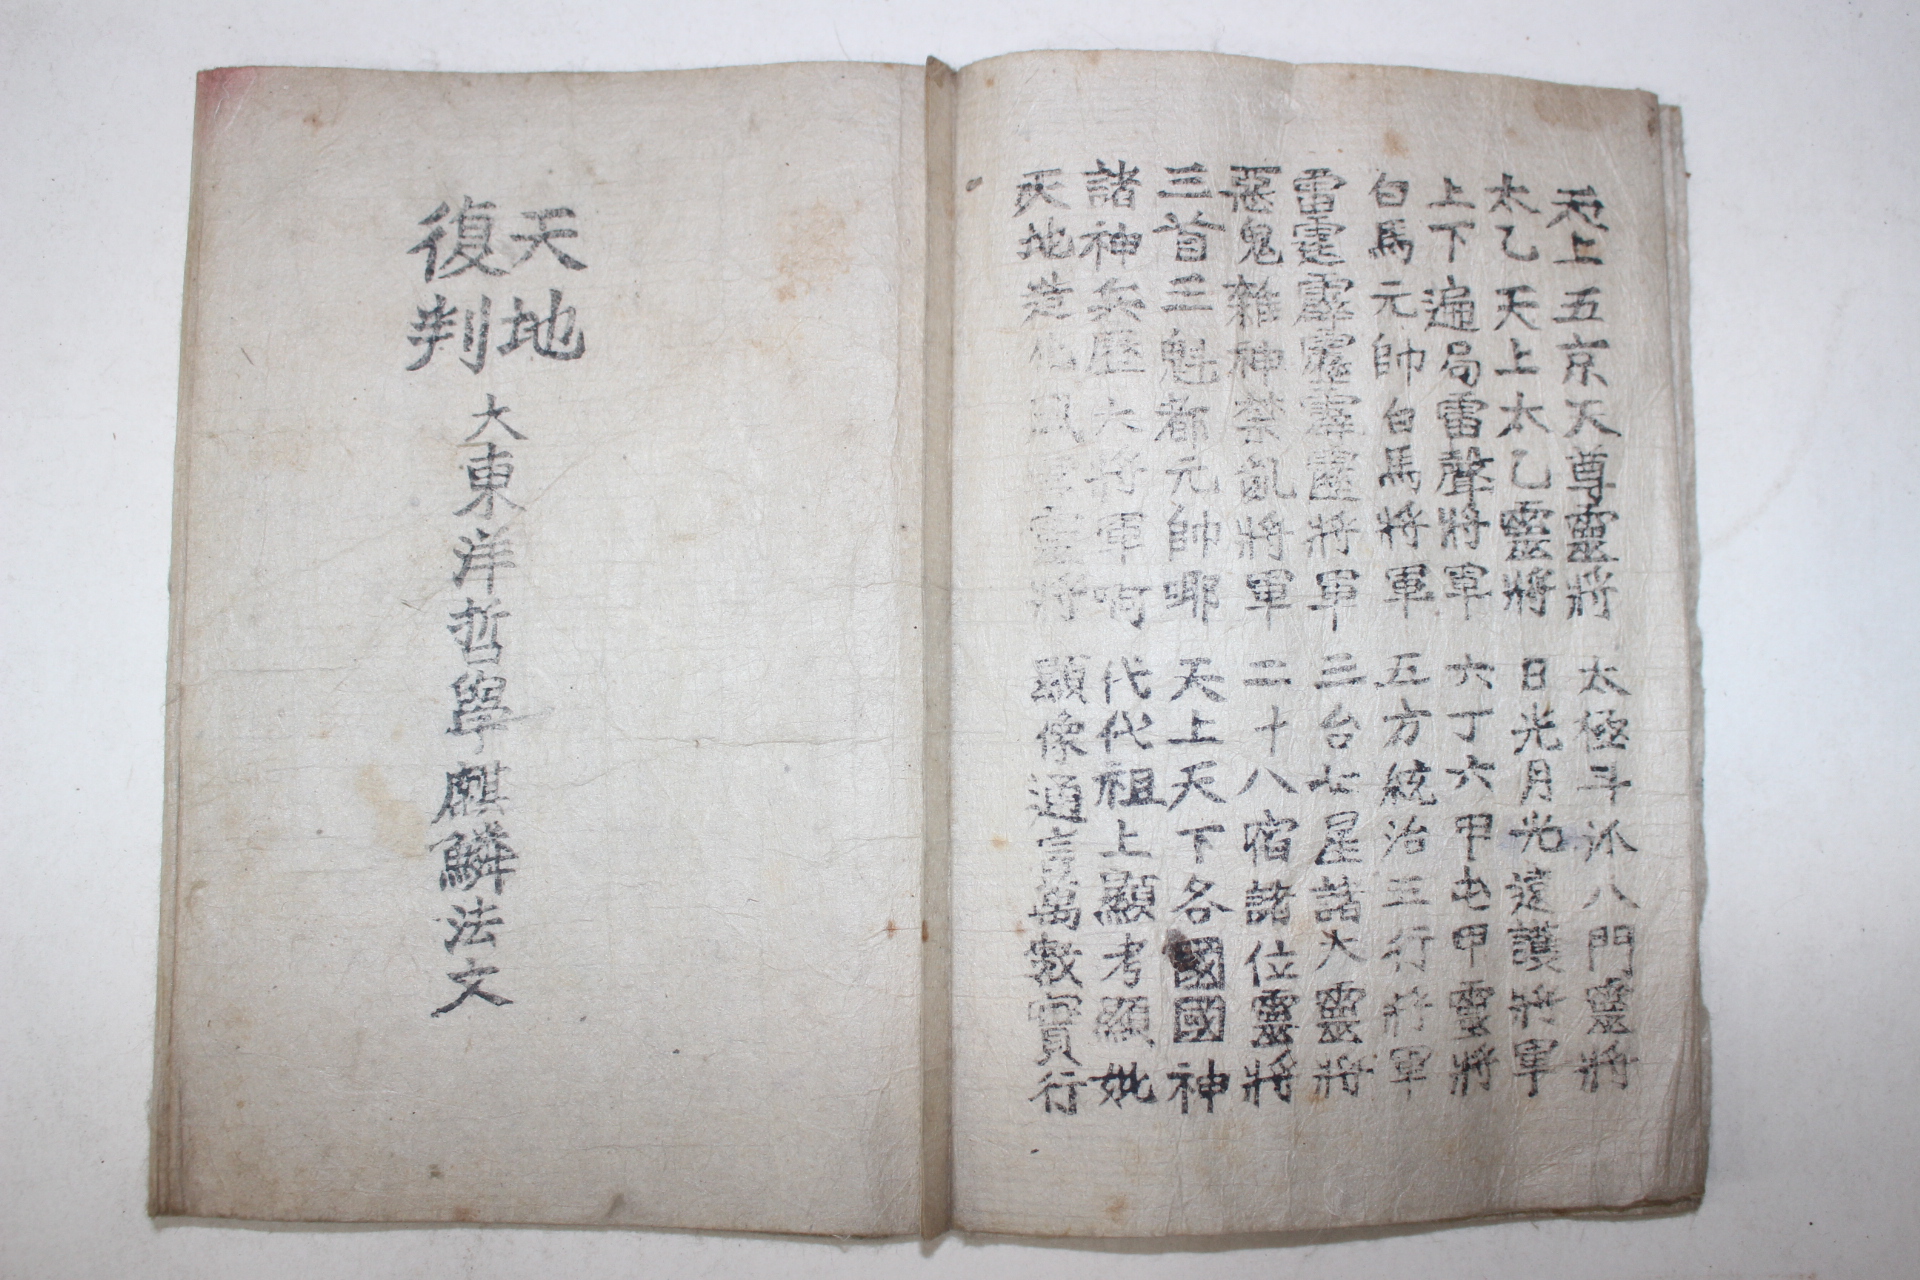 天上五京天尊靈將 太極斗 八門靈將
太乙天上太乙靈將 日光月光遠護將軍
上下遍局雷聲將軍 六丁六甲屯甲靈將
白馬元帥白馬將軍 五方統治三行將軍
雷霆霹靂霹靂將軍 三台七星諸大靈將
惡鬼雜神禁亂將軍 二十八宿諸位靈將
三首三魁都元帥耶 天上天下各國國神
諸神兵歷六將軍啊 代代祖上顯考顯妣
天地造化風 靈將 顯像通言萬數實行
天地
復判
大東洋哲學麒麟法文